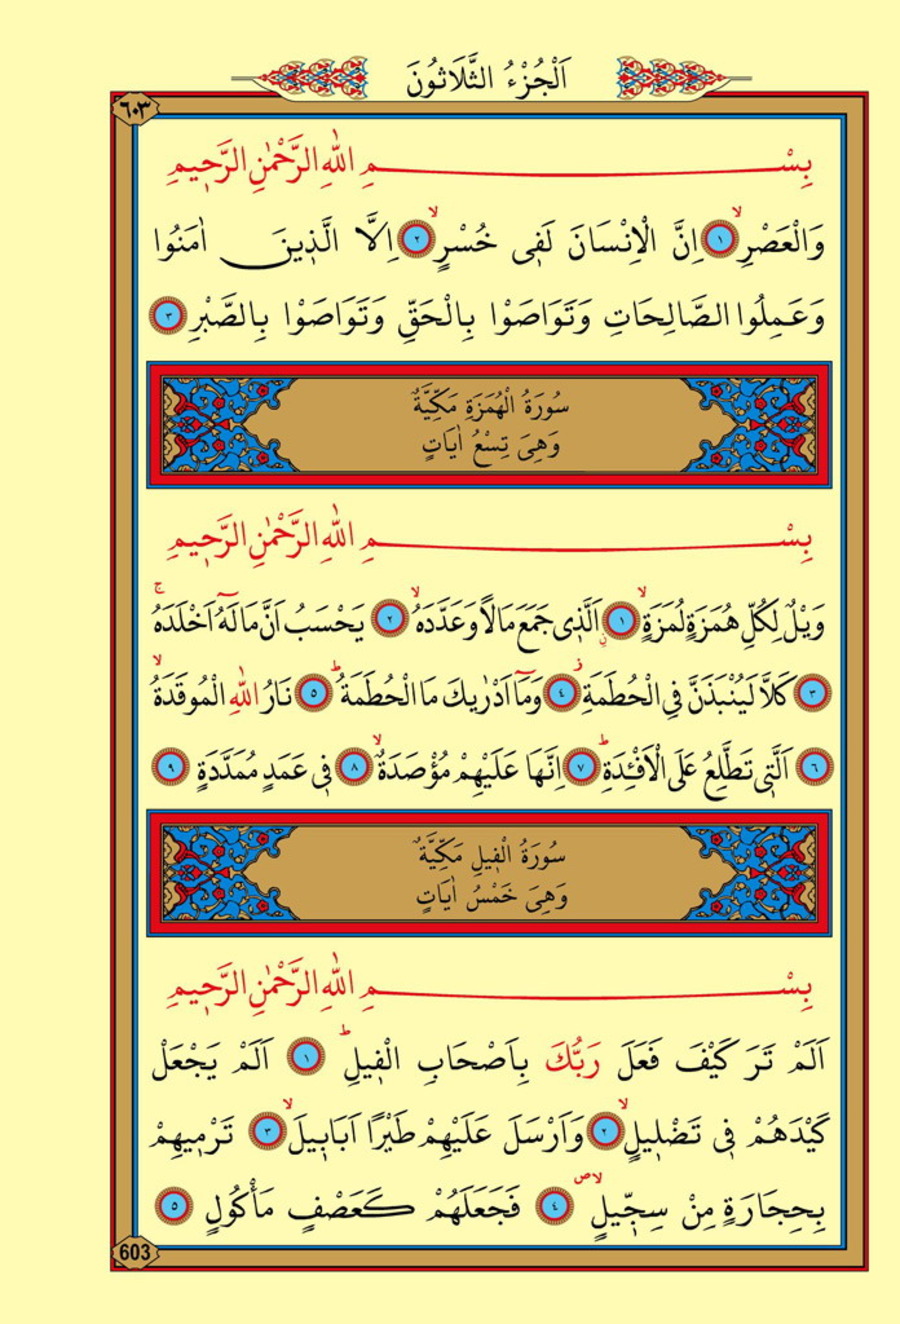 اَلْجُزْءُ الثَّلَاثُونَ
٦٠٣
بِسْمِ اللّٰهِ الرَّحْمٰنِ الرَّحٖيمِ
وَالْعَصْرِۙ ١ اِنَّ الْاِنْسَانَ لَفٖى خُسْرٍۙ ٢ اِلَّا الَّذٖينَ اٰمَنُوا
وَعَمِلُوا الصَّالِحَاتِ وَتَوَاصَوْا بِالْحَقِّ وَتَوَاصَوْا بِالصَّبْرِ ٣
سُورَةُ الْهُمَزَةِ مَكِّيَّةٌ
وَهِىَ تِسْعُ اٰيَاتٍ
بِسْمِ اللّٰهِ الرَّحْمٰنِ الرَّحٖيمِ
وَيْلٌ لِكُلِّ هُمَزَةٍ لُمَزَةٍۙ ١ اَلَّذٖى جَمَعَ مَالًا وَعَدَّدَهُۙ ٢ يَحْسَبُ اَنَّ مَالَهُٓ اَخْلَدَهُۚ
٣ كَلَّا لَيُنْبَذَنَّ فِى الْحُطَمَةِؗ ٤ وَمَٓا اَدْرٰيكَ مَا الْحُطَمَةُؕ ٥ نَارُ اللّٰهِ الْمُوقَدَةُۙ
٦ اَلَّتٖى تَطَّلِعُ عَلَى الْاَفْـِٔدَةِؕ ٧ اِنَّهَا عَلَيْهِمْ مُؤْصَدَةٌۙ ٨ فٖى عَمَدٍ مُمَدَّدَةٍ ٩
سُورَةُ الْفٖيلِ مَكِّيَّةٌ
وَهِىَ خَمْسُ اٰيَاتٍ
بِسْمِ اللّٰهِ الرَّحْمٰنِ الرَّحٖيمِ
اَلَمْ تَرَ كَيْفَ فَعَلَ رَبُّكَ بِاَصْحَابِ الْفٖيلِؕ ١ اَلَمْ يَجْعَلْ
كَيْدَهُمْ فٖى تَضْلٖيلٍۙ ٢ وَاَرْسَلَ عَلَيْهِمْ طَيْرًا اَبَابٖيلَۙ ٣ تَرْمٖيهِمْ
بِحِجَارَةٍ مِنْ سِجّٖيلٍۙࣕ ٤ فَجَعَلَهُمْ كَعَصْفٍ مَأْكُولٍ ٥
603